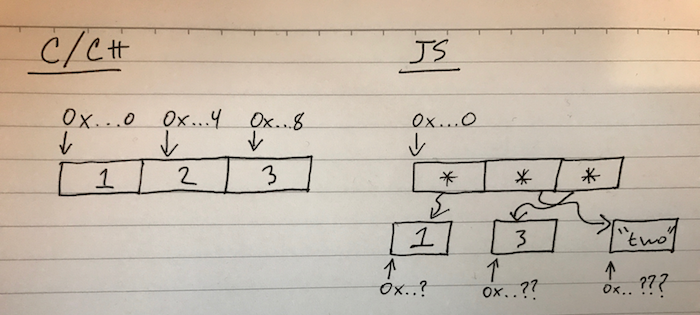 C/C++
JS
0x...0 0x...4 0x...8
0x...0
1 2 3
* * *
1 3 "two"
0x..? 0x..?? 0x..???